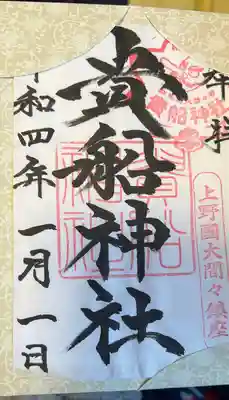 奉拝
上野國大間々鎮座
貴船神社
貴船神社
令和四年一月一日